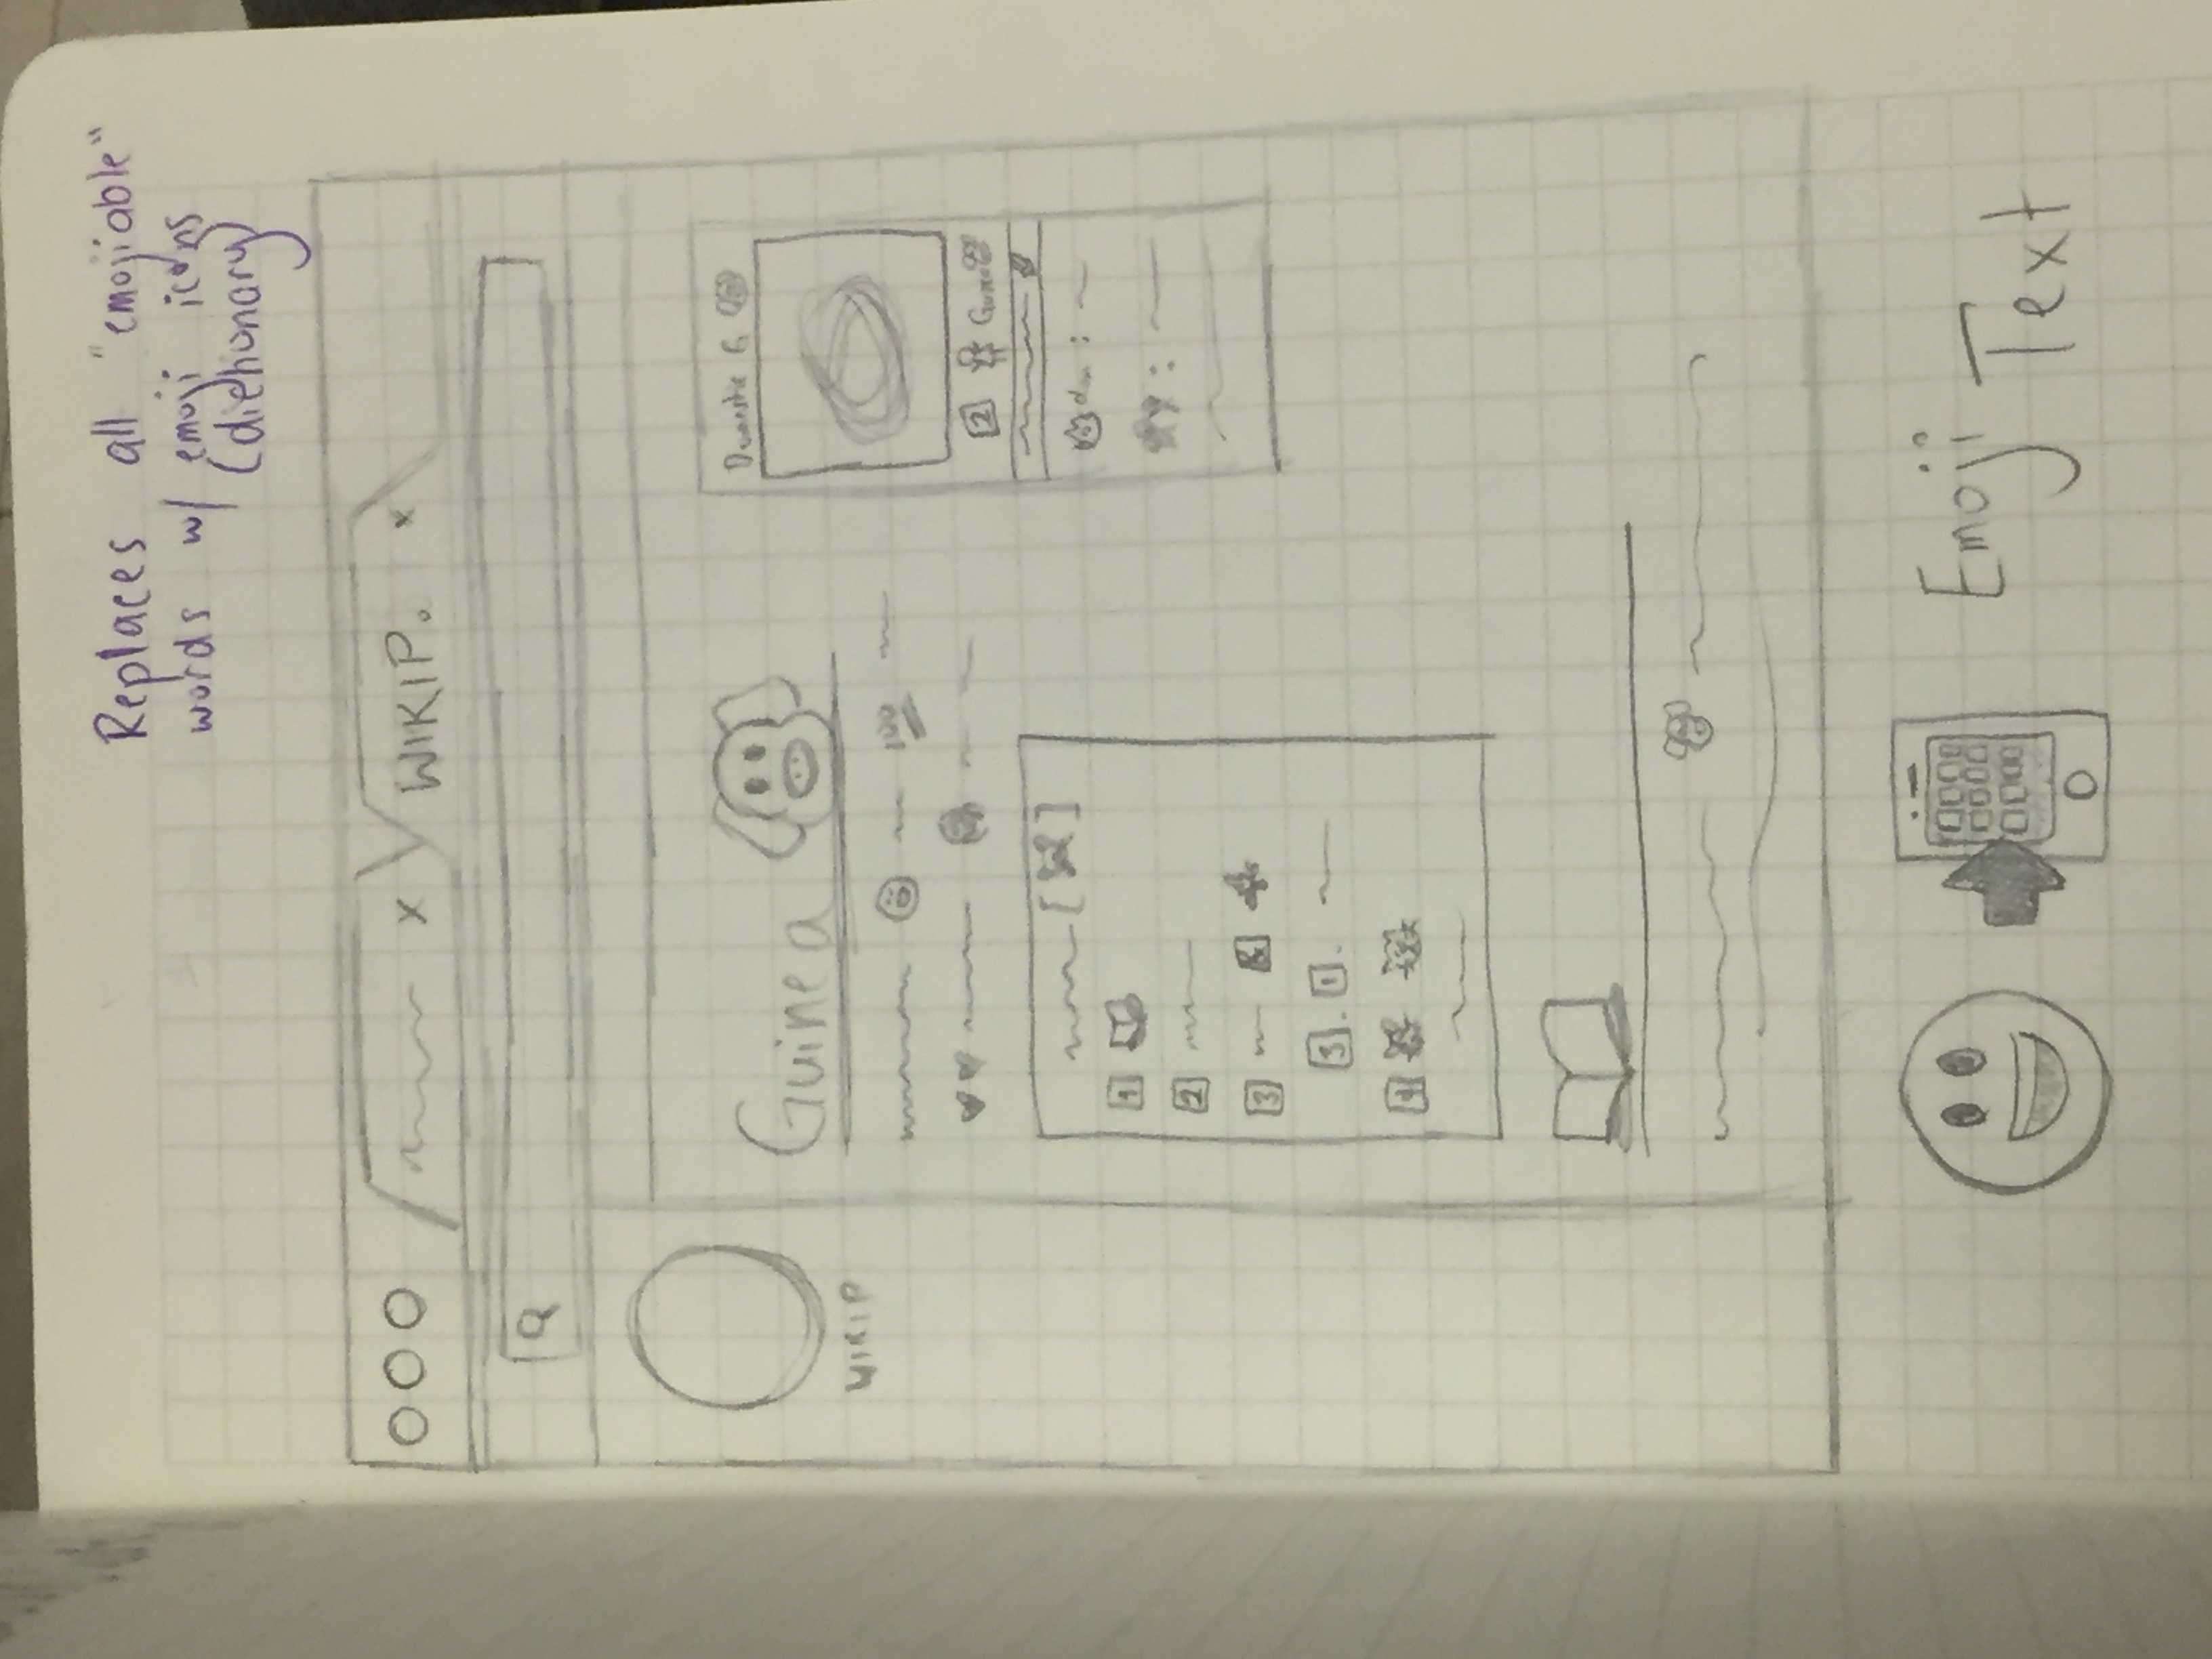 Replaces all "emojiable"
words w/ emoji icons
(dictionary)
x WIKIP. x
WIKIP
Guinea
Domestic G
100
2 Guinea
[ ]
1
2
3 &
3. 1.
4
Emoji
Text